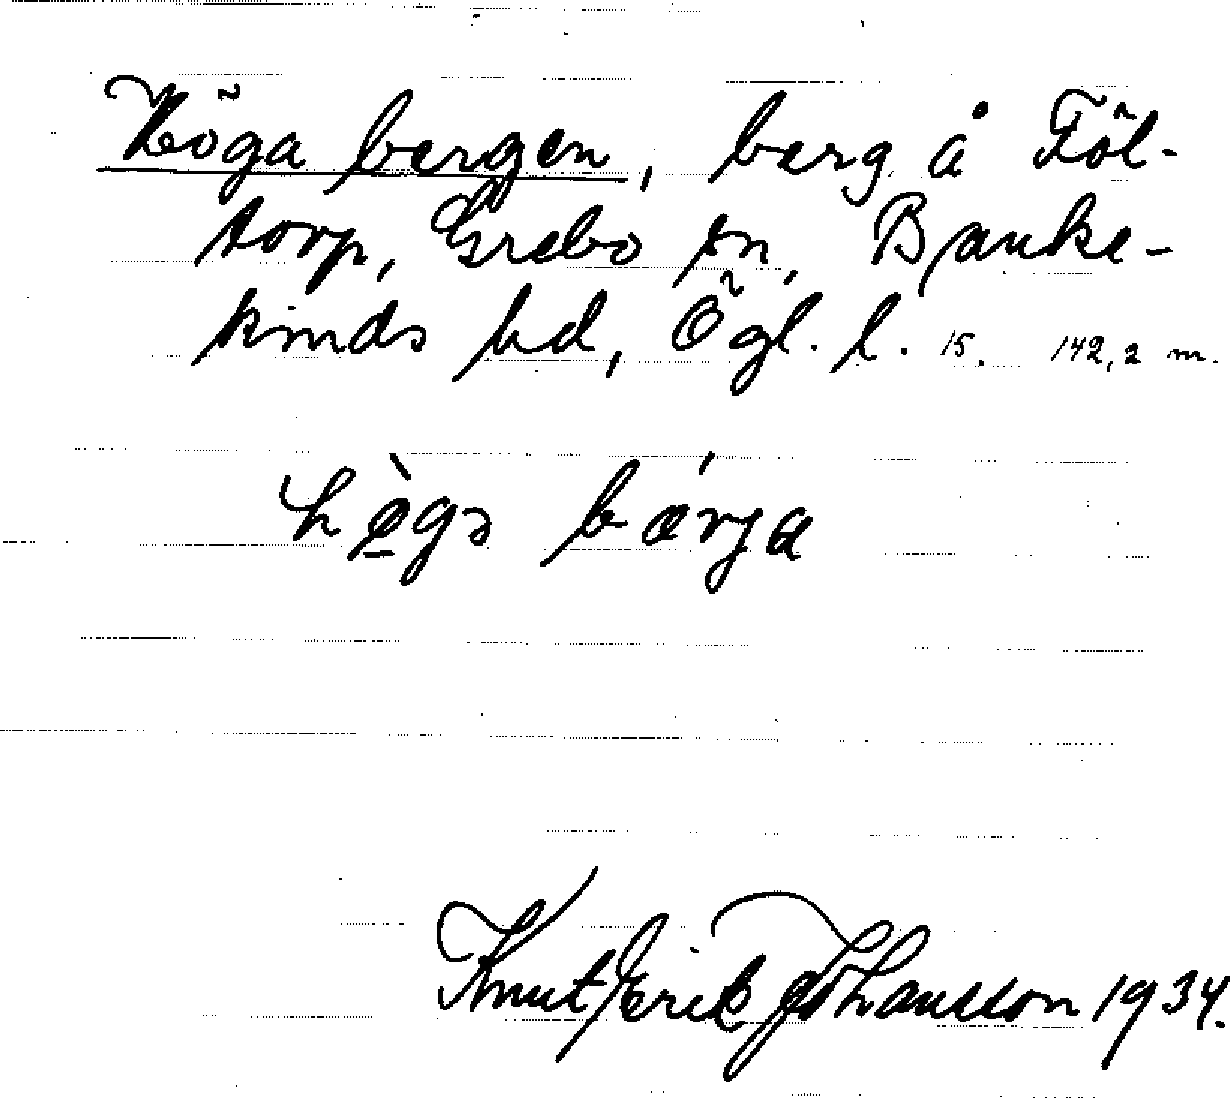 Höga bergen, berg å Föl-
torp, Grebo sn, Banke-
kinds hd, Ögl. l. 15. 142,2 m.
hø̀gə bǽrja
Knut Erik Johansson 1934.